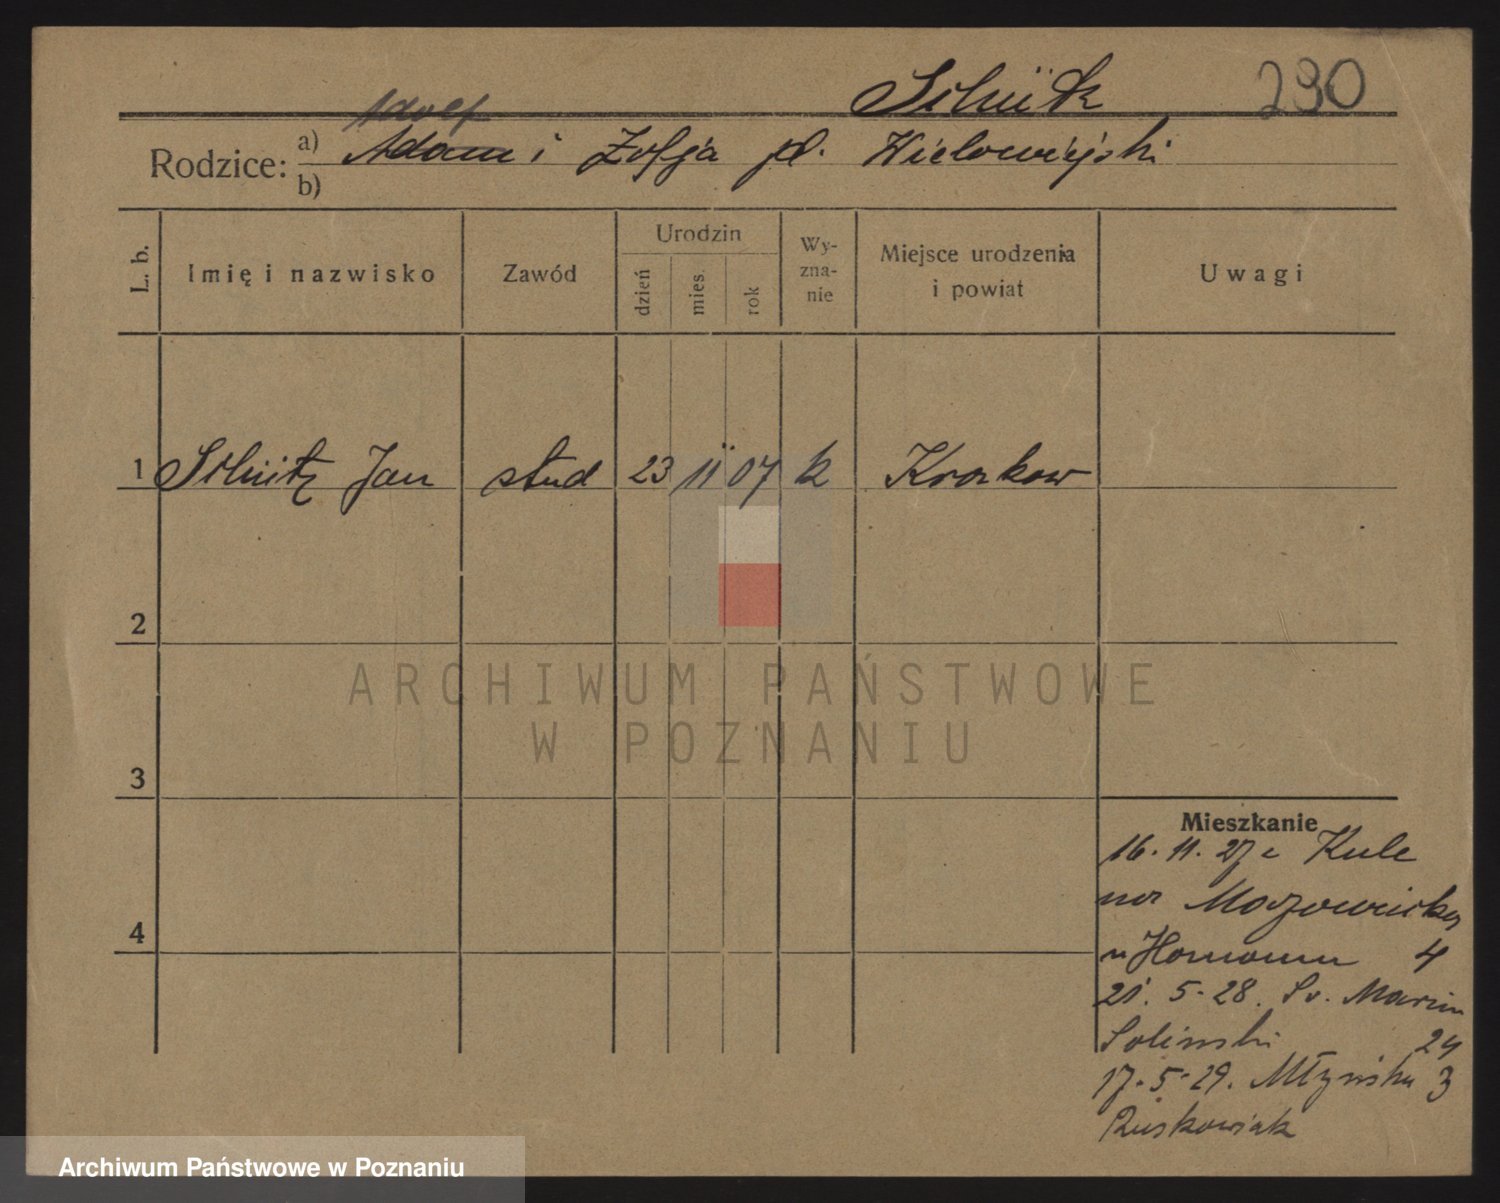 290
Adolf
Rodzice: a) Adam i Zofja pl. Wielowiejski
b)
L. b. Imię i nazwisko Zawód Urodzin dzień mies. rok Wy-zna-nie Miejsce urodzenia i powiat Uwagi
1 Jan stud 23 11 07 k Krakow
2
3
4
ARCHIWUM PAŃSTWOWE
W POZNANIU
Mieszkanie
16. 11. 27 z Kule
na Mazowiecka
u 4
21. 5-28. Sv. Marcin
Solinski 24
17-5-29. Młyńska 3
Ruskowiak
Archiwum Państwowe w Poznaniu